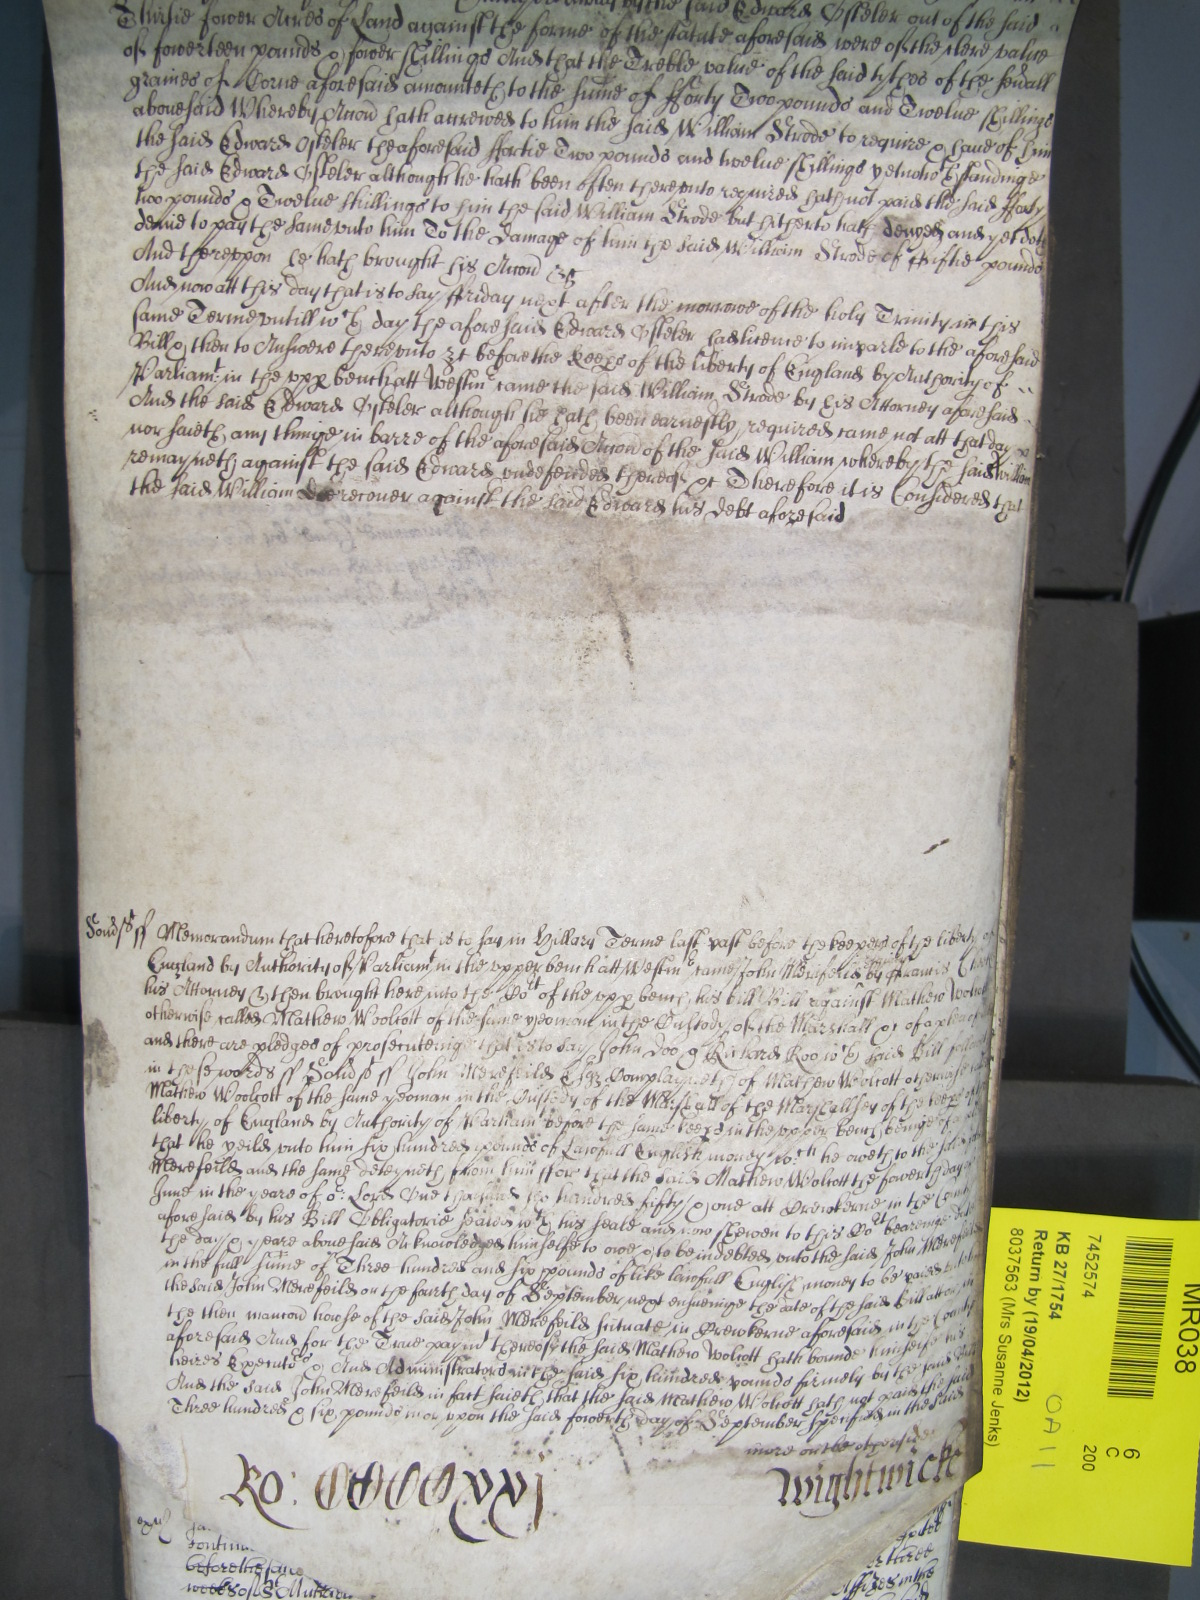 the said Edward Osteler out of the said
Thirtie fower Acres of Land against the forme of the statute aforesaid were of the clere value
of fowerteen pounds & fower shillings And that the Treble value of the said tythes of the
graines of Corne aforesaid amounteth to the sume of fforty Two pounds and Twelue shillings
abouesaid Whereby Accon hath accrewed to him the said William Strode to require & haue of him
the said Edward Osteler the aforesaid ffortie Two pounds and twelue shillings yet notwthstandinge
the said Edward Osteler although he hath been often therevnto required hath not paid the said fforty
two pounds & Twelue shillings to him the said William Strode but hitherto hath denyed and yet doth
denie to pay the same vnto him To the damage of him the said William Strode of ffiftie pounds
And therevppon he hath brought his Accon &c
And now att this day that is to say ffriday next after the morrowe of the holy Trinity in this
same Terme vntill wch day the aforesaid Edward Osteler had licence to imparle to the aforesaid
Bill & then to Answere therevnto &c before the keeps of the liberty of England by Authority of
Parliamt in the vpp bench att Westmr came the said William Strode by his Attorney aforesaid
And the said Edward Osteler although he hath been earnestly required came not att that day
nor saieth any thinge in barre of the aforesaid Accon of the said William whereby the said William
remayneth against the said Edward vndefended thereof &c Therefore it is Considered that
the said William doe recouer against the said Edward his debt aforesaid
Somst ss Memorandum that heretofore that is to say in Hillary Terme last past before the keepers of the liberty of
England by Authority of Parliamt in the vpper bench att Westmr came John Merefeild by ffrancis
his Attorney & then brought here into the Cot of the vpp bench his Bill against Mathew Wolcott
otherwise called Mathew Woolcott of the same yeoman in the Custody of the Marshall &c of a plea of
and there are pledges of prosecuteinge that is to say John Doo & Richard Roo wch said Bill
in these words ss Somst ss John Merefeild Complayneth of Mathew Wolcott otherwise
Mathew Woolcott of the same yeoman in the Custody of the Marshall of the Marshallsey of the keeps of
liberty of England by Authority of Parliamt before the same keeps in the vpper bench beinge of
that he yeild vnto him six hundred pounds of Lawfull English money wch he oweth to the
Merefeild and the same deteyneth from him ffor that the said Mathew Wolcott the fowerth day of
June in the yeare of or Lord One thousand six hundred fifty & one att Crewkerne in the County
aforesaid by his Bill Obligatorie Sealed wth his seale and now shewen to this Cot beareinge date
the day & yeare abouesaid Acknowledged himselfe to owe & to be indebted vnto the said John Merefeild
in the full sume of Three hundred and six pounds of like lawfull English money to be paid
the said John Merefeild on the fourth day of September next ensueinge the date of the said Bill
the then mancon howse of the said John Merefeild situate in Crewkerne aforesaid in the County
aforesaid And for the True paymt thereof the said Mathew Wolcott hath bound himselfe his
heires Executrs & And Administrators in the said six hundred pounds firmely by the said
And the said John Merefeild in fact saieth that the said Mathew Wolcott hath not paid the said
Three hundred & six pounds vpon the said fowerth day of September specified in the said
more on the other side
Ro: CCCCCxxj Wightwicke
before the same
MR038
6
C
200
7452574
KB 27/1754
Return by (19/04/2012)
8037563 (Mrs Susanne Jenks)
OA 11